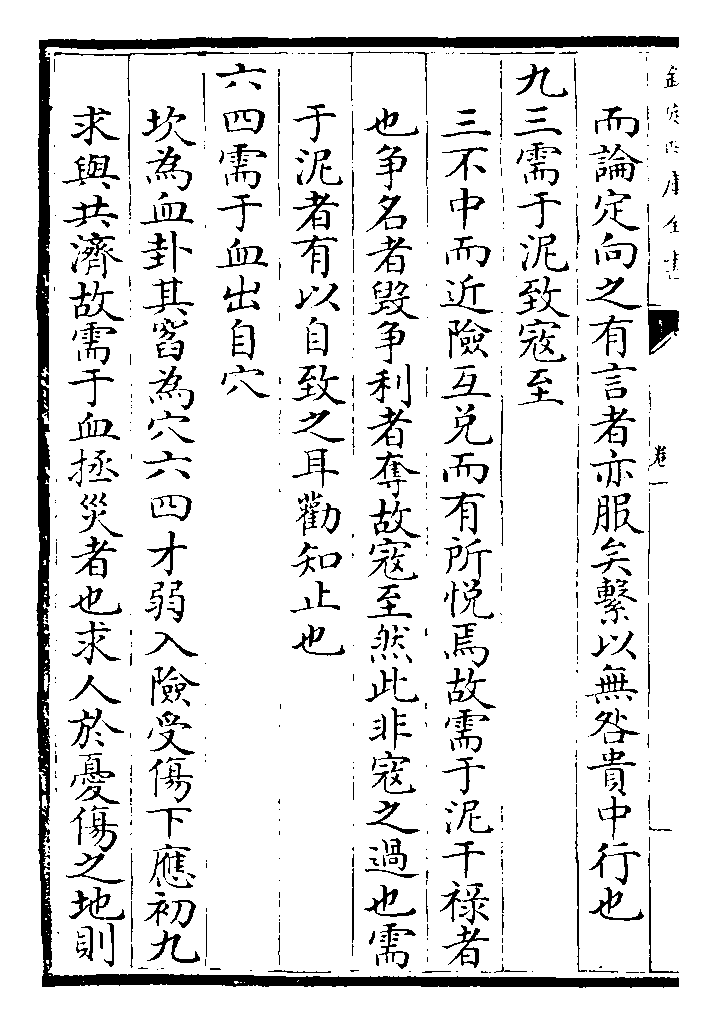 欽定四庫全書
卷一
而論定向之有言者亦服矣繫以無咎貴中行也
九三需于泥致寇至
三不中而近險互兌而有所悅焉故需于泥干祿者
也爭名者毀爭利者奪故寇至然此非寇之過也需
于泥者有以自致之耳勸知止也
六四需于血出自穴
坎為血卦其窞為穴六四才弱入險受傷下應初九
求與共濟故需于血拯災者也求人於憂傷之地則